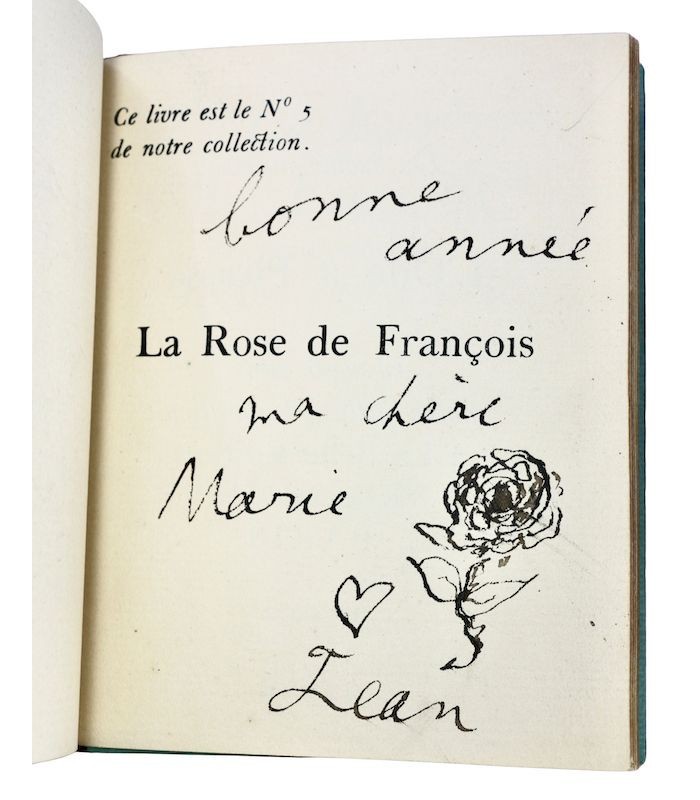 Ce livre est le Nº 5
de notre collection.
bonne
année
La Rose de François
ma chère
Marie
Jean